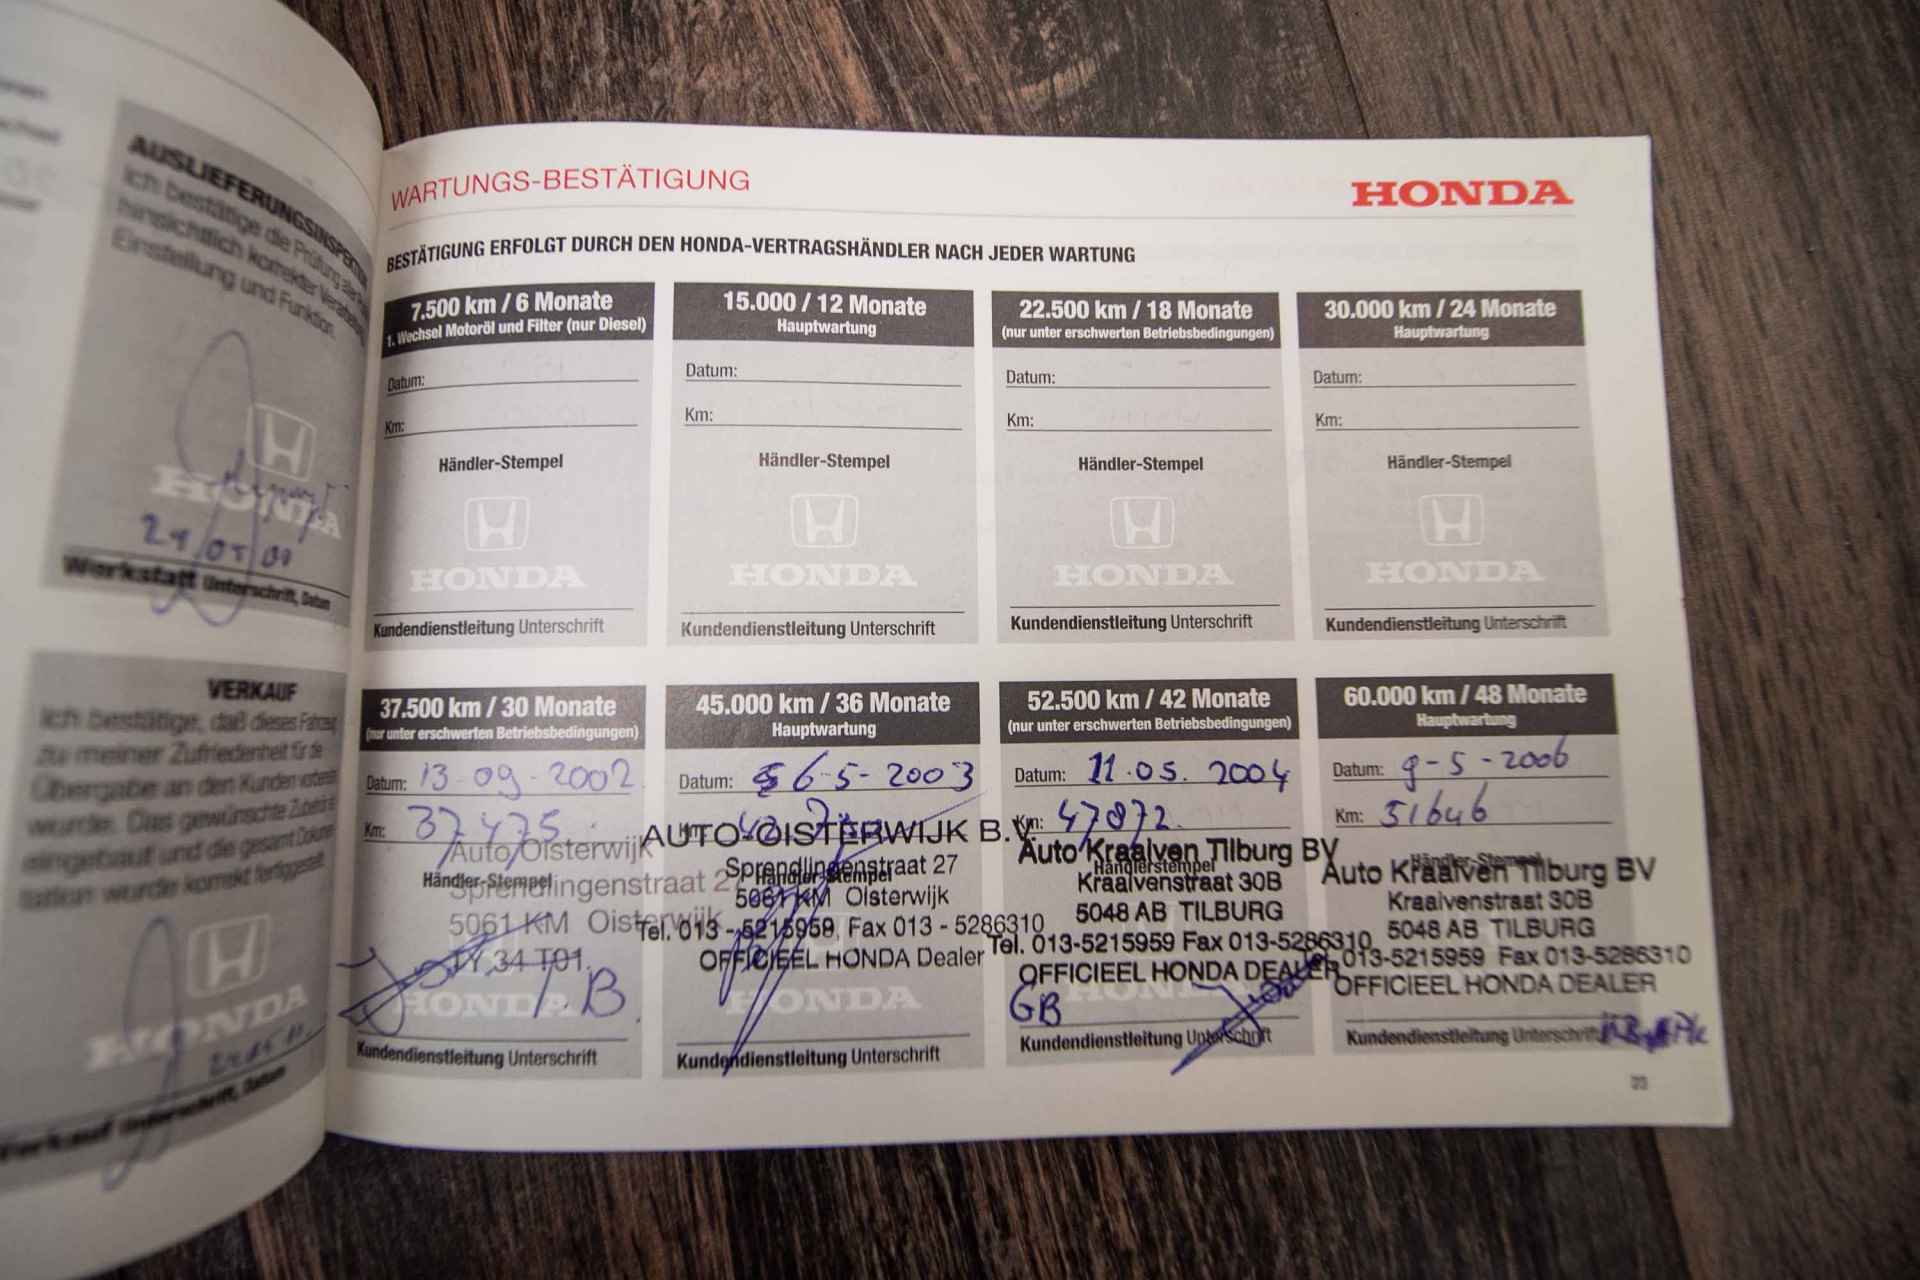 AUSLIEFERUNGSINSPEKTION
Ich bestätige die Prüfung
hinsichtlich korrekter
Einstellung und Funktion.
HONDA
Werkstatt Unterschrift, Datum
VERKAUF
Ich bestätige, daß dieses
zu meiner Zufriedenheit für die
Übergabe an den Kunden
wurde. Das gewünschte
eingebaut und die gesamt
tation wurde korrekt fertiggestellt.
HONDA
Verkauf Unterschrift, Datum
WARTUNGS-BESTÄTIGUNG
HONDA
BESTÄTIGUNG ERFOLGT DURCH DEN HONDA-VERTRAGSHÄNDLER NACH JEDER WARTUNG
7.500 km / 6 Monate
1. Wechsel Motoröl und Filter (nur Diesel)
Datum:
Km:
Händler-Stempel
HONDA
Kundendienstleitung Unterschrift
15.000 / 12 Monate
Hauptwartung
Datum:
Km:
Händler-Stempel
HONDA
Kundendienstleitung Unterschrift
22.500 km / 18 Monate
(nur unter erschwerten Betriebsbedingungen)
Datum:
Km:
Händler-Stempel
HONDA
Kundendienstleitung Unterschrift
30.000 km / 24 Monate
Hauptwartung
Datum:
Km:
Händler-Stempel
HONDA
Kundendienstleitung Unterschrift
37.500 km / 30 Monate
(nur unter erschwerten Betriebsbedingungen)
Datum: 13-09-2002
Km: 37475
Auto Oisterwijk
Händler-Stempel
Sprendlingenstraat 27
5061 KM Oisterwijk
HONDA
Kundendienstleitung Unterschrift
45.000 km / 36 Monate
Hauptwartung
Datum: 6-5-2003
Km:
AUTO-OISTERWIJK B.V.
Sprendlingenstraat 27
Händler-Stempel
5061 KM Oisterwijk
Tel. 013 - 5215959, Fax 013 - 5286310
OFFICIEEL HONDA Dealer
HONDA
Kundendienstleitung Unterschrift
52.500 km / 42 Monate
(nur unter erschwerten Betriebsbedingungen)
Datum: 11.05.2004
Km: 47872.
Auto Kraaiven Tilburg BV
Händlerstempel
Kraaivenstraat 30B
5048 AB TILBURG
Tel. 013-5215959 Fax 013-5286310
OFFICIEEL HONDA DEALER
HONDA
GB
Kundendienstleitung Unterschrift
60.000 km / 48 Monate
Hauptwartung
Datum: 9-5-2006
Km: 51646
Händler-Stempel
Auto Kraaiven Tilburg BV
Kraaivenstraat 30B
5048 AB TILBURG
013-5215959 Fax 013-5286310
OFFICIEEL HONDA DEALER
Kundendienstleitung Unterschrift